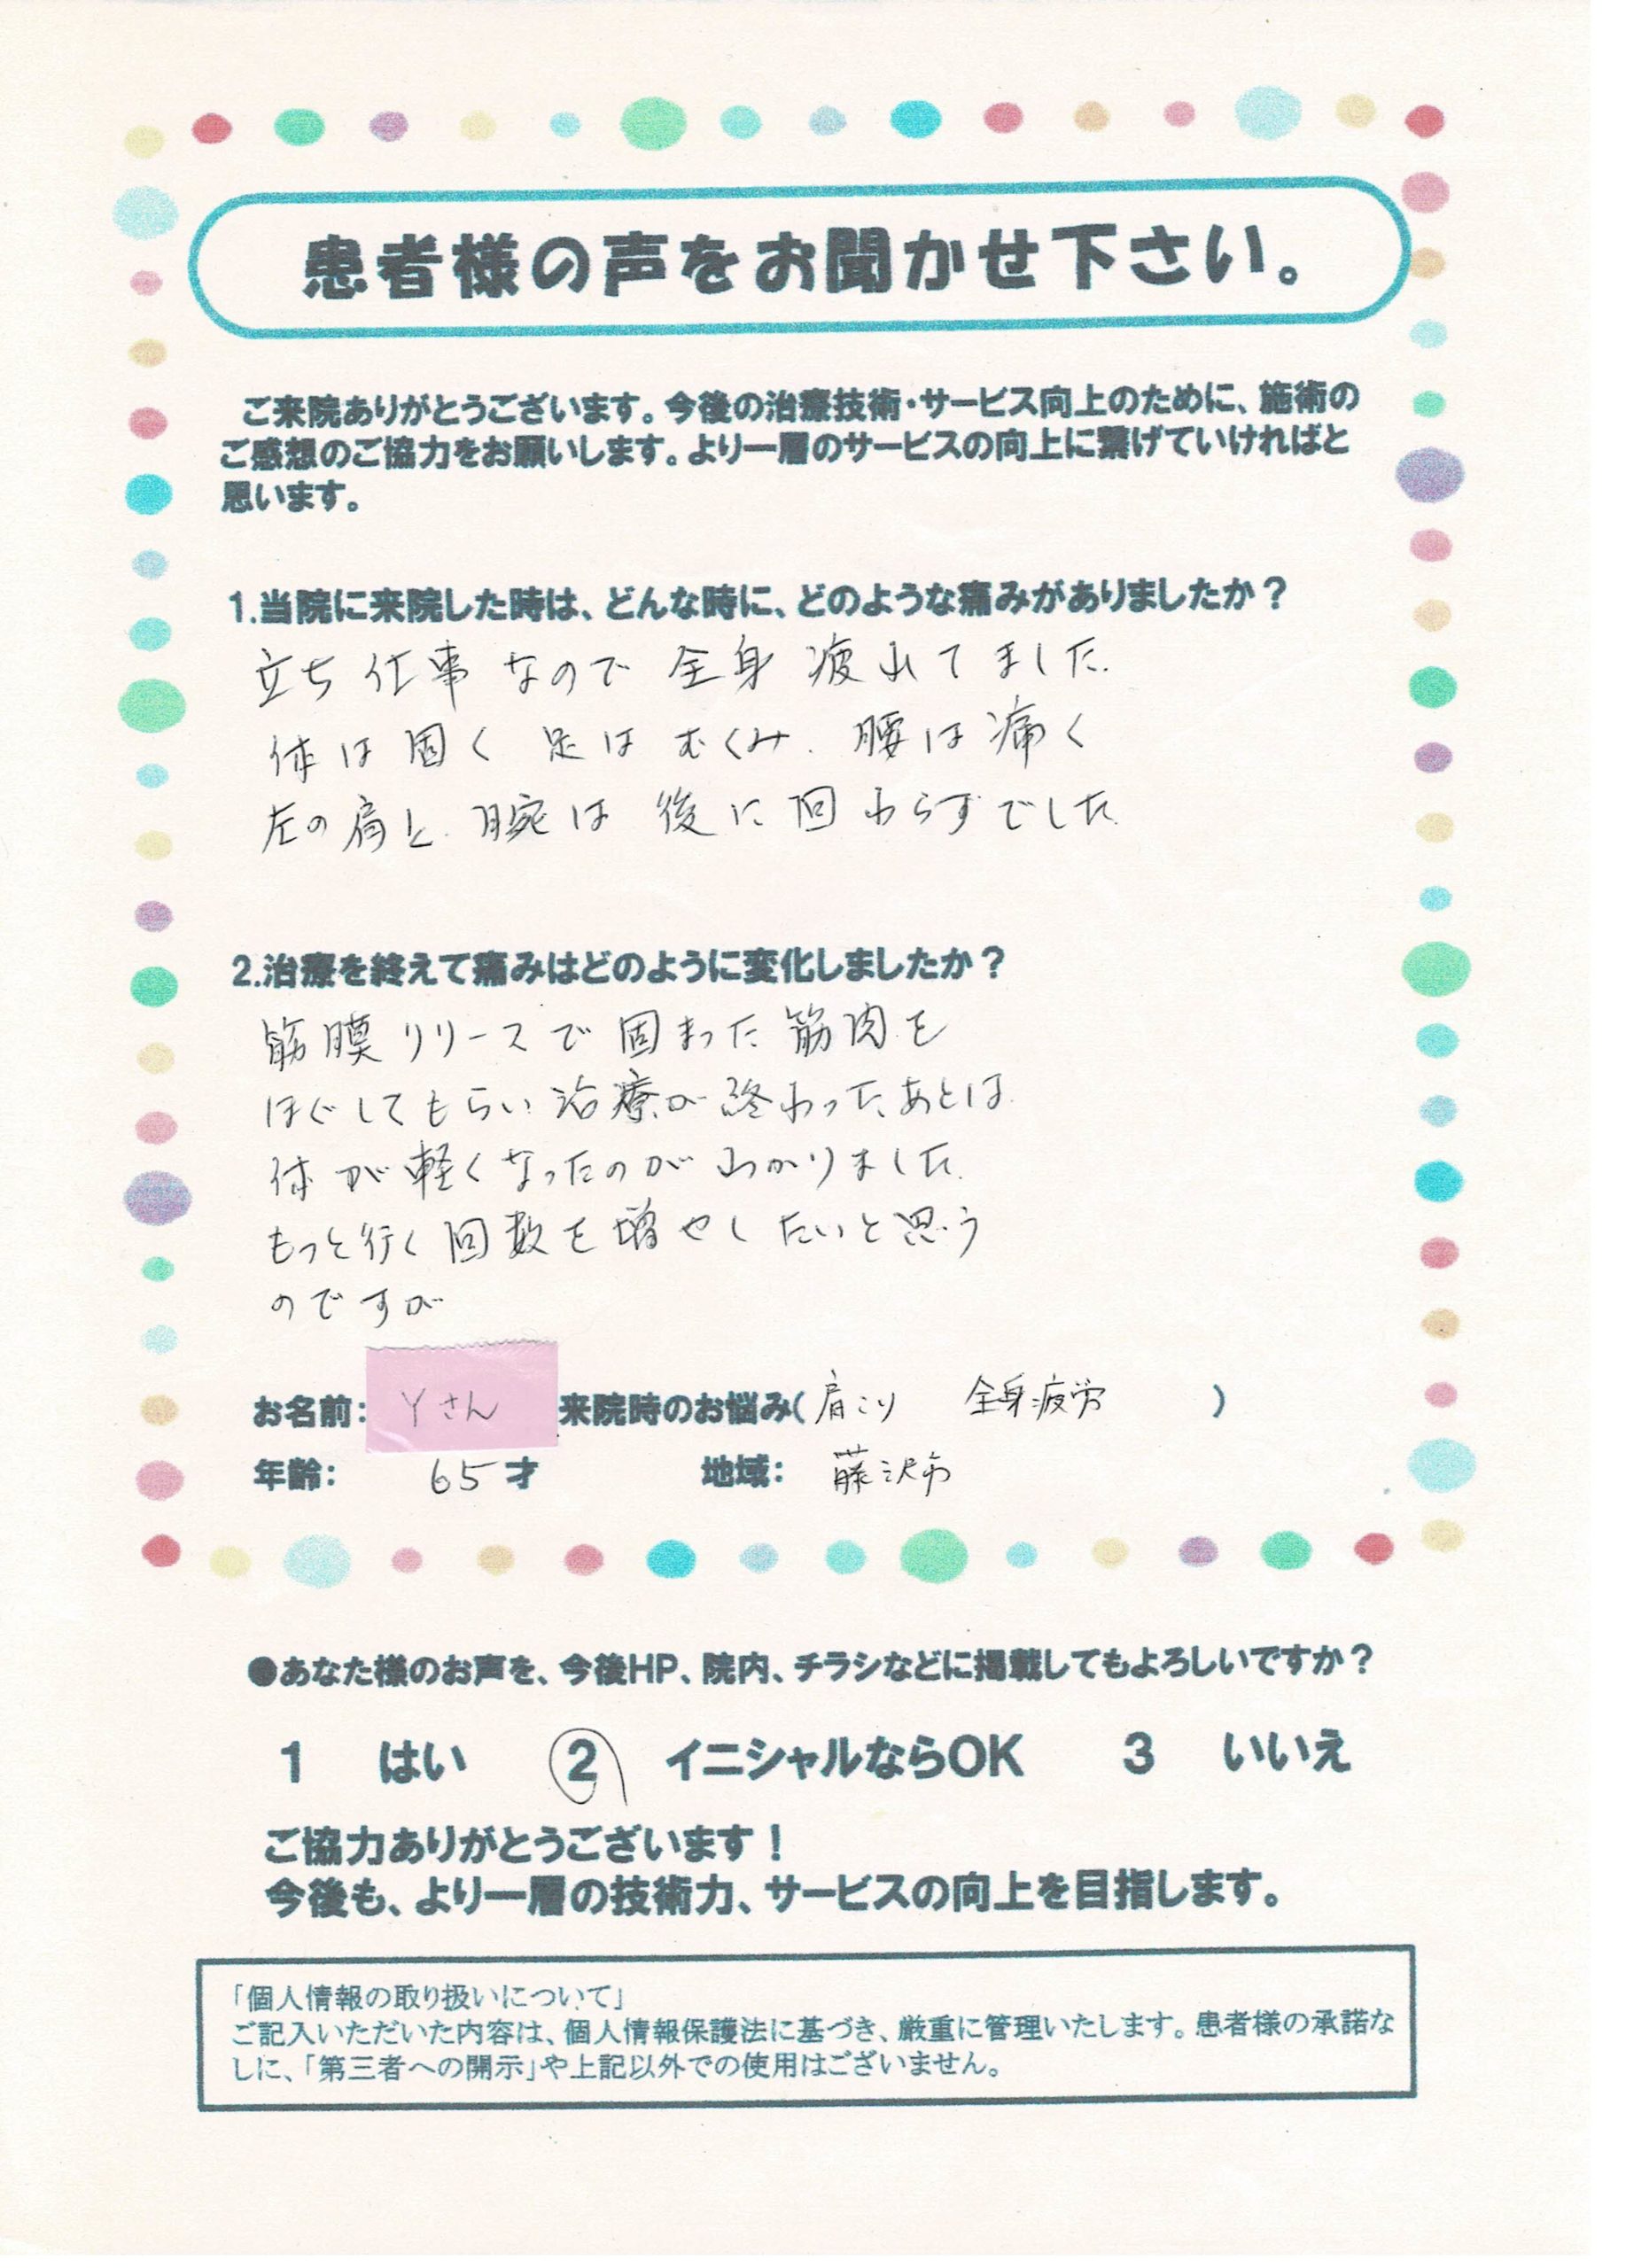 患者様の声をお聞かせ下さい。
ご来院ありがとうございます。今後の治療技術・サービス向上のために、施術の
ご感想のご協力をお願いします。より一層のサービスの向上に繋げていければと
思います。
1.当院に来院した時は、どんな時に、どのような痛みがありましたか？
立ち仕事なので全身疲れてました.
体は固く足はむくみ.腰は痛く
左の肩と.腕は後に回わらずでした.
2.治療を終えて痛みはどのように変化しましたか？
筋膜リリースで固まった筋肉を
ほぐしてもらい治療が終わったあとは.
体が軽くなったのがわかりました.
もっと行く回数を増やしたいと思う
のですが
お名前: Yさん 来院時のお悩み( 肩こり 全身疲労 )
年齢: 65才 地域: 藤沢市
●あなた様のお声を、今後HP、院内、チラシなどに掲載してもよろしいですか？
1 はい 2 イニシャルならOK 3 いいえ
ご協力ありがとうございます！
今後も、より一層の技術力、サービスの向上を目指します。
「個人情報の取り扱いについて」
ご記入いただいた内容は、個人情報保護法に基づき、厳重に管理いたします。患者様の承諾な
しに、「第三者への開示」や上記以外での使用はございません。